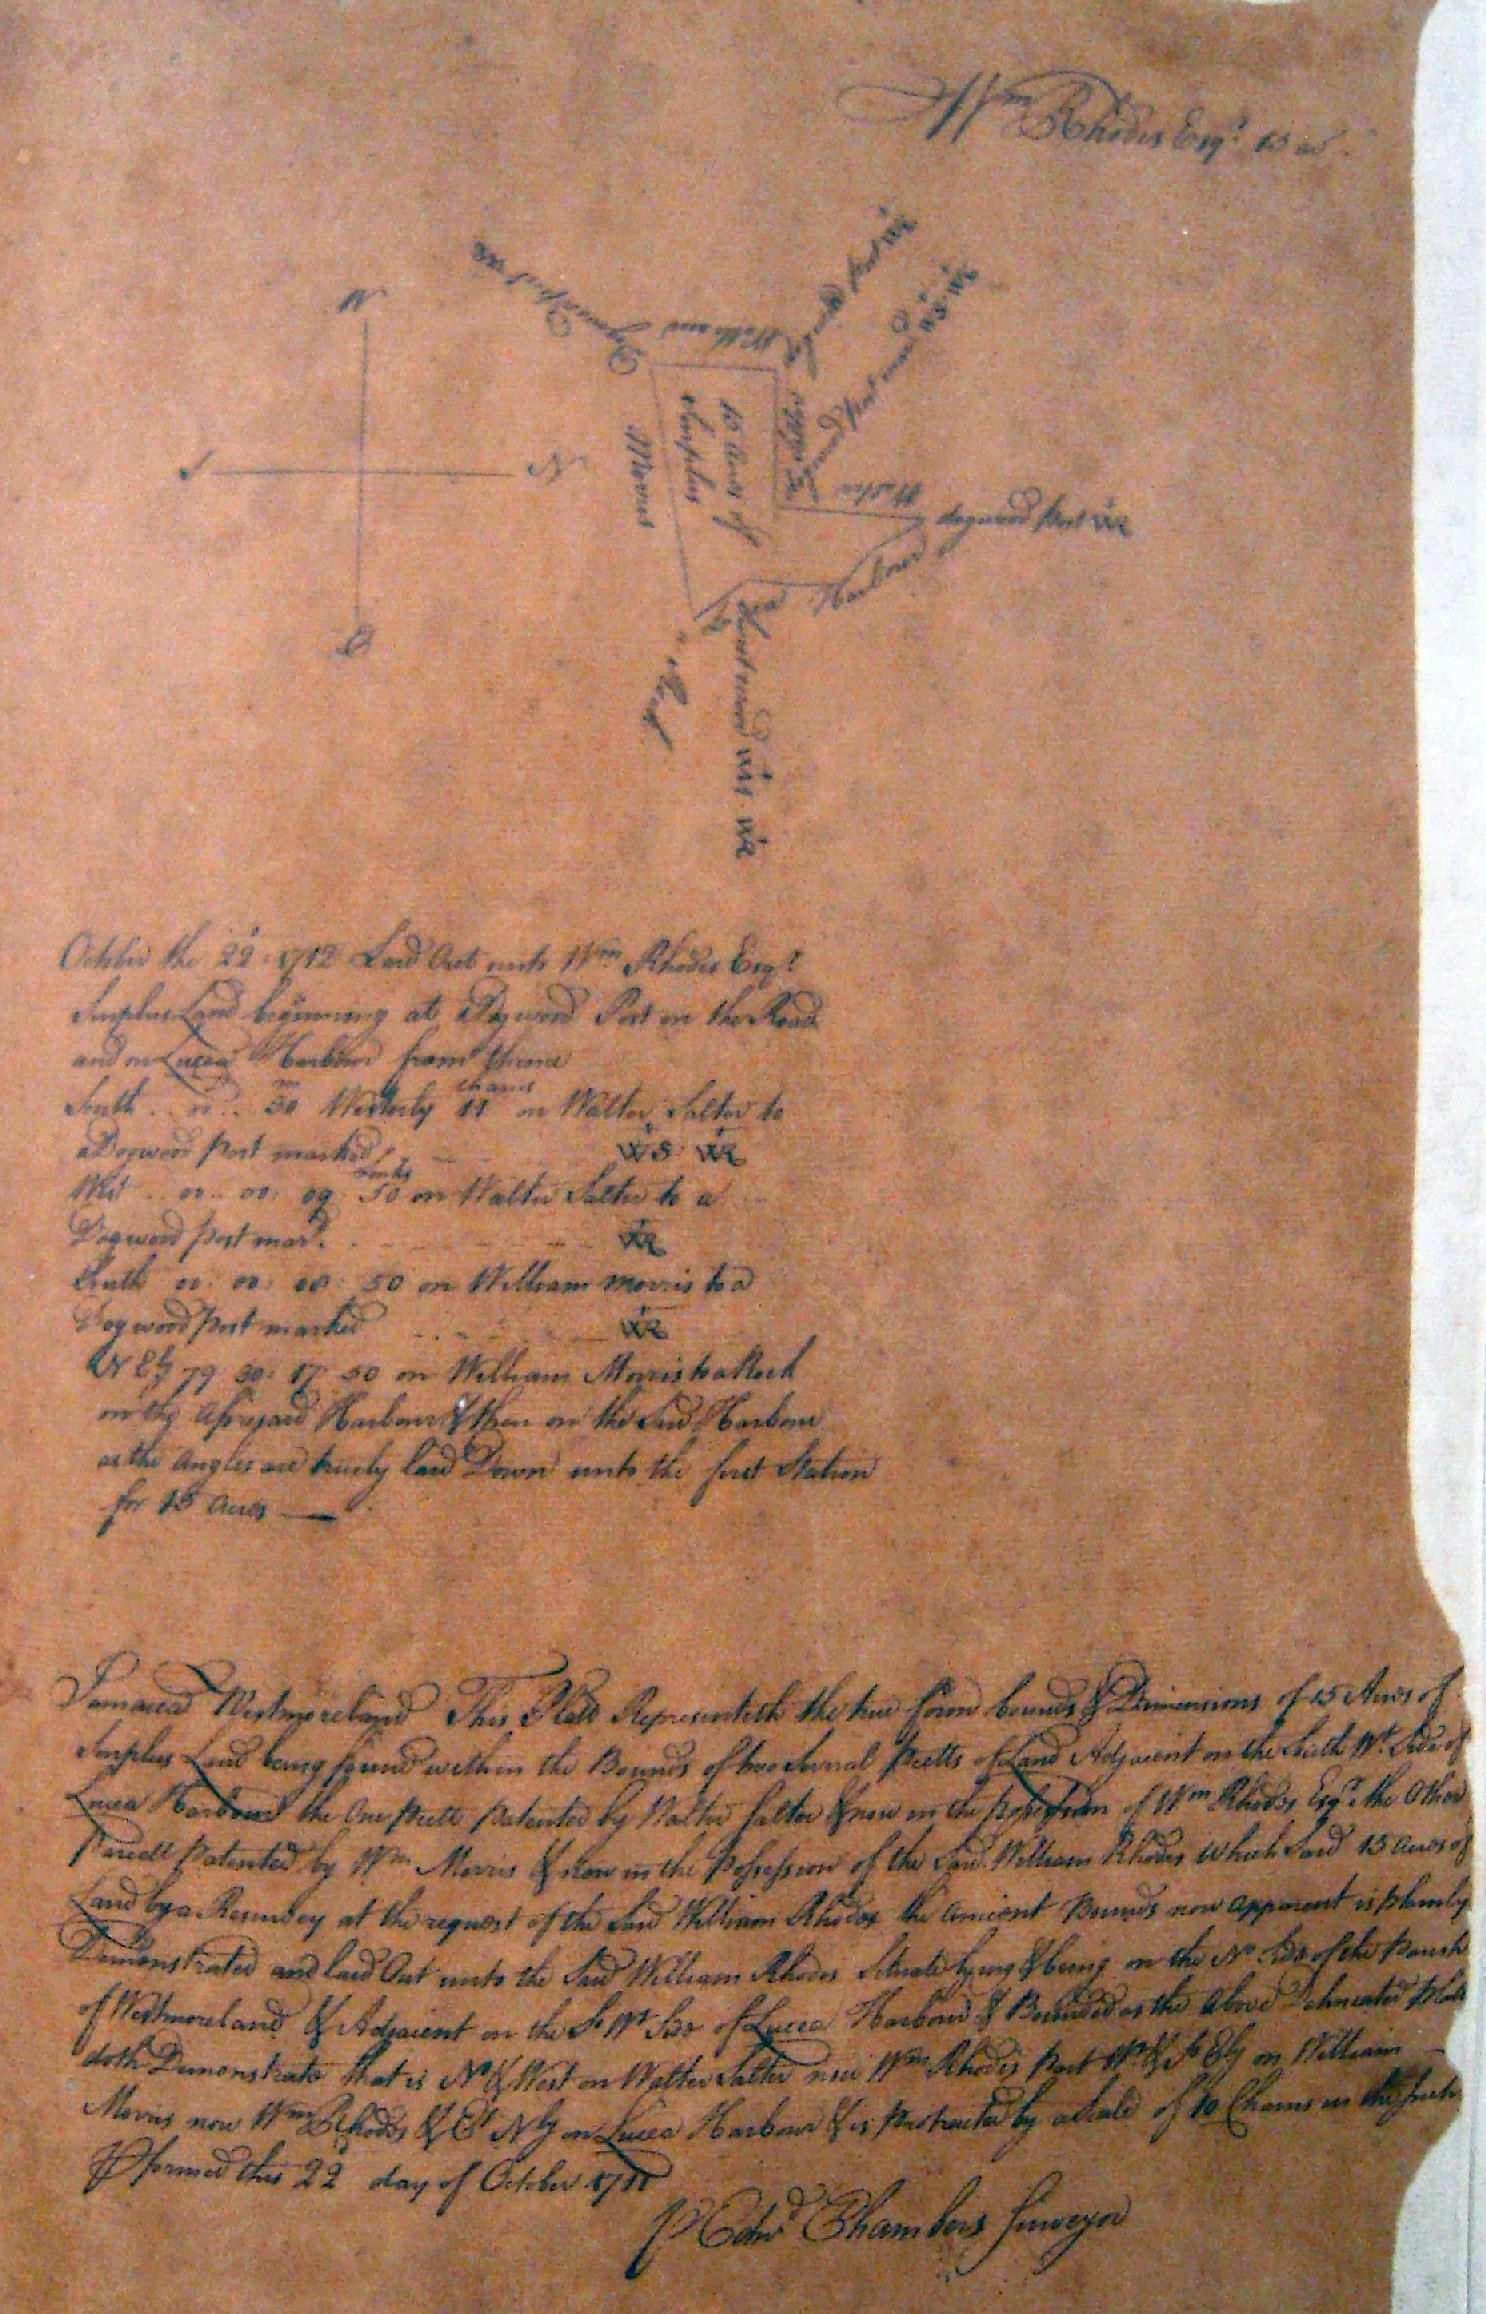 Wm Rhodes Esqr. 15 ac.
W
S
N
E
Cypress post WR
William
Dogwood post WR
Dogwood post mard WS WR
Salter
Walter
dogwood post WR
15 Acres of
Surplus
Morris
Lucea Harbour
a Rock
WS WR
October the 22d: 1712 Laid Out unto Wm. Rhodes Esqr.
Surplus Land beginning at a Dogwood Post on the Road
and on Lucea Harbour from thence
South .. 0 .. 30m Westerly 11 chains on Walter Salter to
a Dogwood post marked WS WR
West .. 00 .. 00: 09 50 Links on Walter Salter to a
Dogwood post mard. WR
South 00: 00: 08: 50 on William Morris to a
Dogwood post marked WR
N Ely 79 30: 17 50 on William Morris to a Rock
on the Aforesaid Harbour & then on the Said Harbour
as the Angles are truely laid Down unto the first Station
for 15 Acres
Jamaica Westmoreland This Platt Representeth the true form bounds & Dimensions of 15 Acres of
Surplus Land being found within the Bounds of two Several Pcells of Land Adjacent on the South Wt. Side of
Lucea Harbour the One Pcell patented by Walter Salter & now in the possession of Wm Rhodes Esqr. the Other
Parcell Patented by Wm. Morris & now in the Possession of the Said William Rhodes which Said 15 Acres of
Land by a Resurvey at the request of the Said William Rhodes the Ancient Bounds now apparent is plainly
Demonstrated and laid Out unto the Said William Rhodes Situate lying & being on the No. Side of the Parish
of Westmoreland & Adjacent on the So Wt Side of Lucea Harbour & Bounded as the Above Delineated Platt
doth Demonstrate that is No & West on Walter Salter now Wm Rhodes part Wt & So Ely on William
Morris now Wm Rhodes & Et Nly on Lucea Harbour & is protracted by a Scale of 10 Chains in the Inch
Pformed this 22d day of October 1711
P Edwd Chambers Surveyor